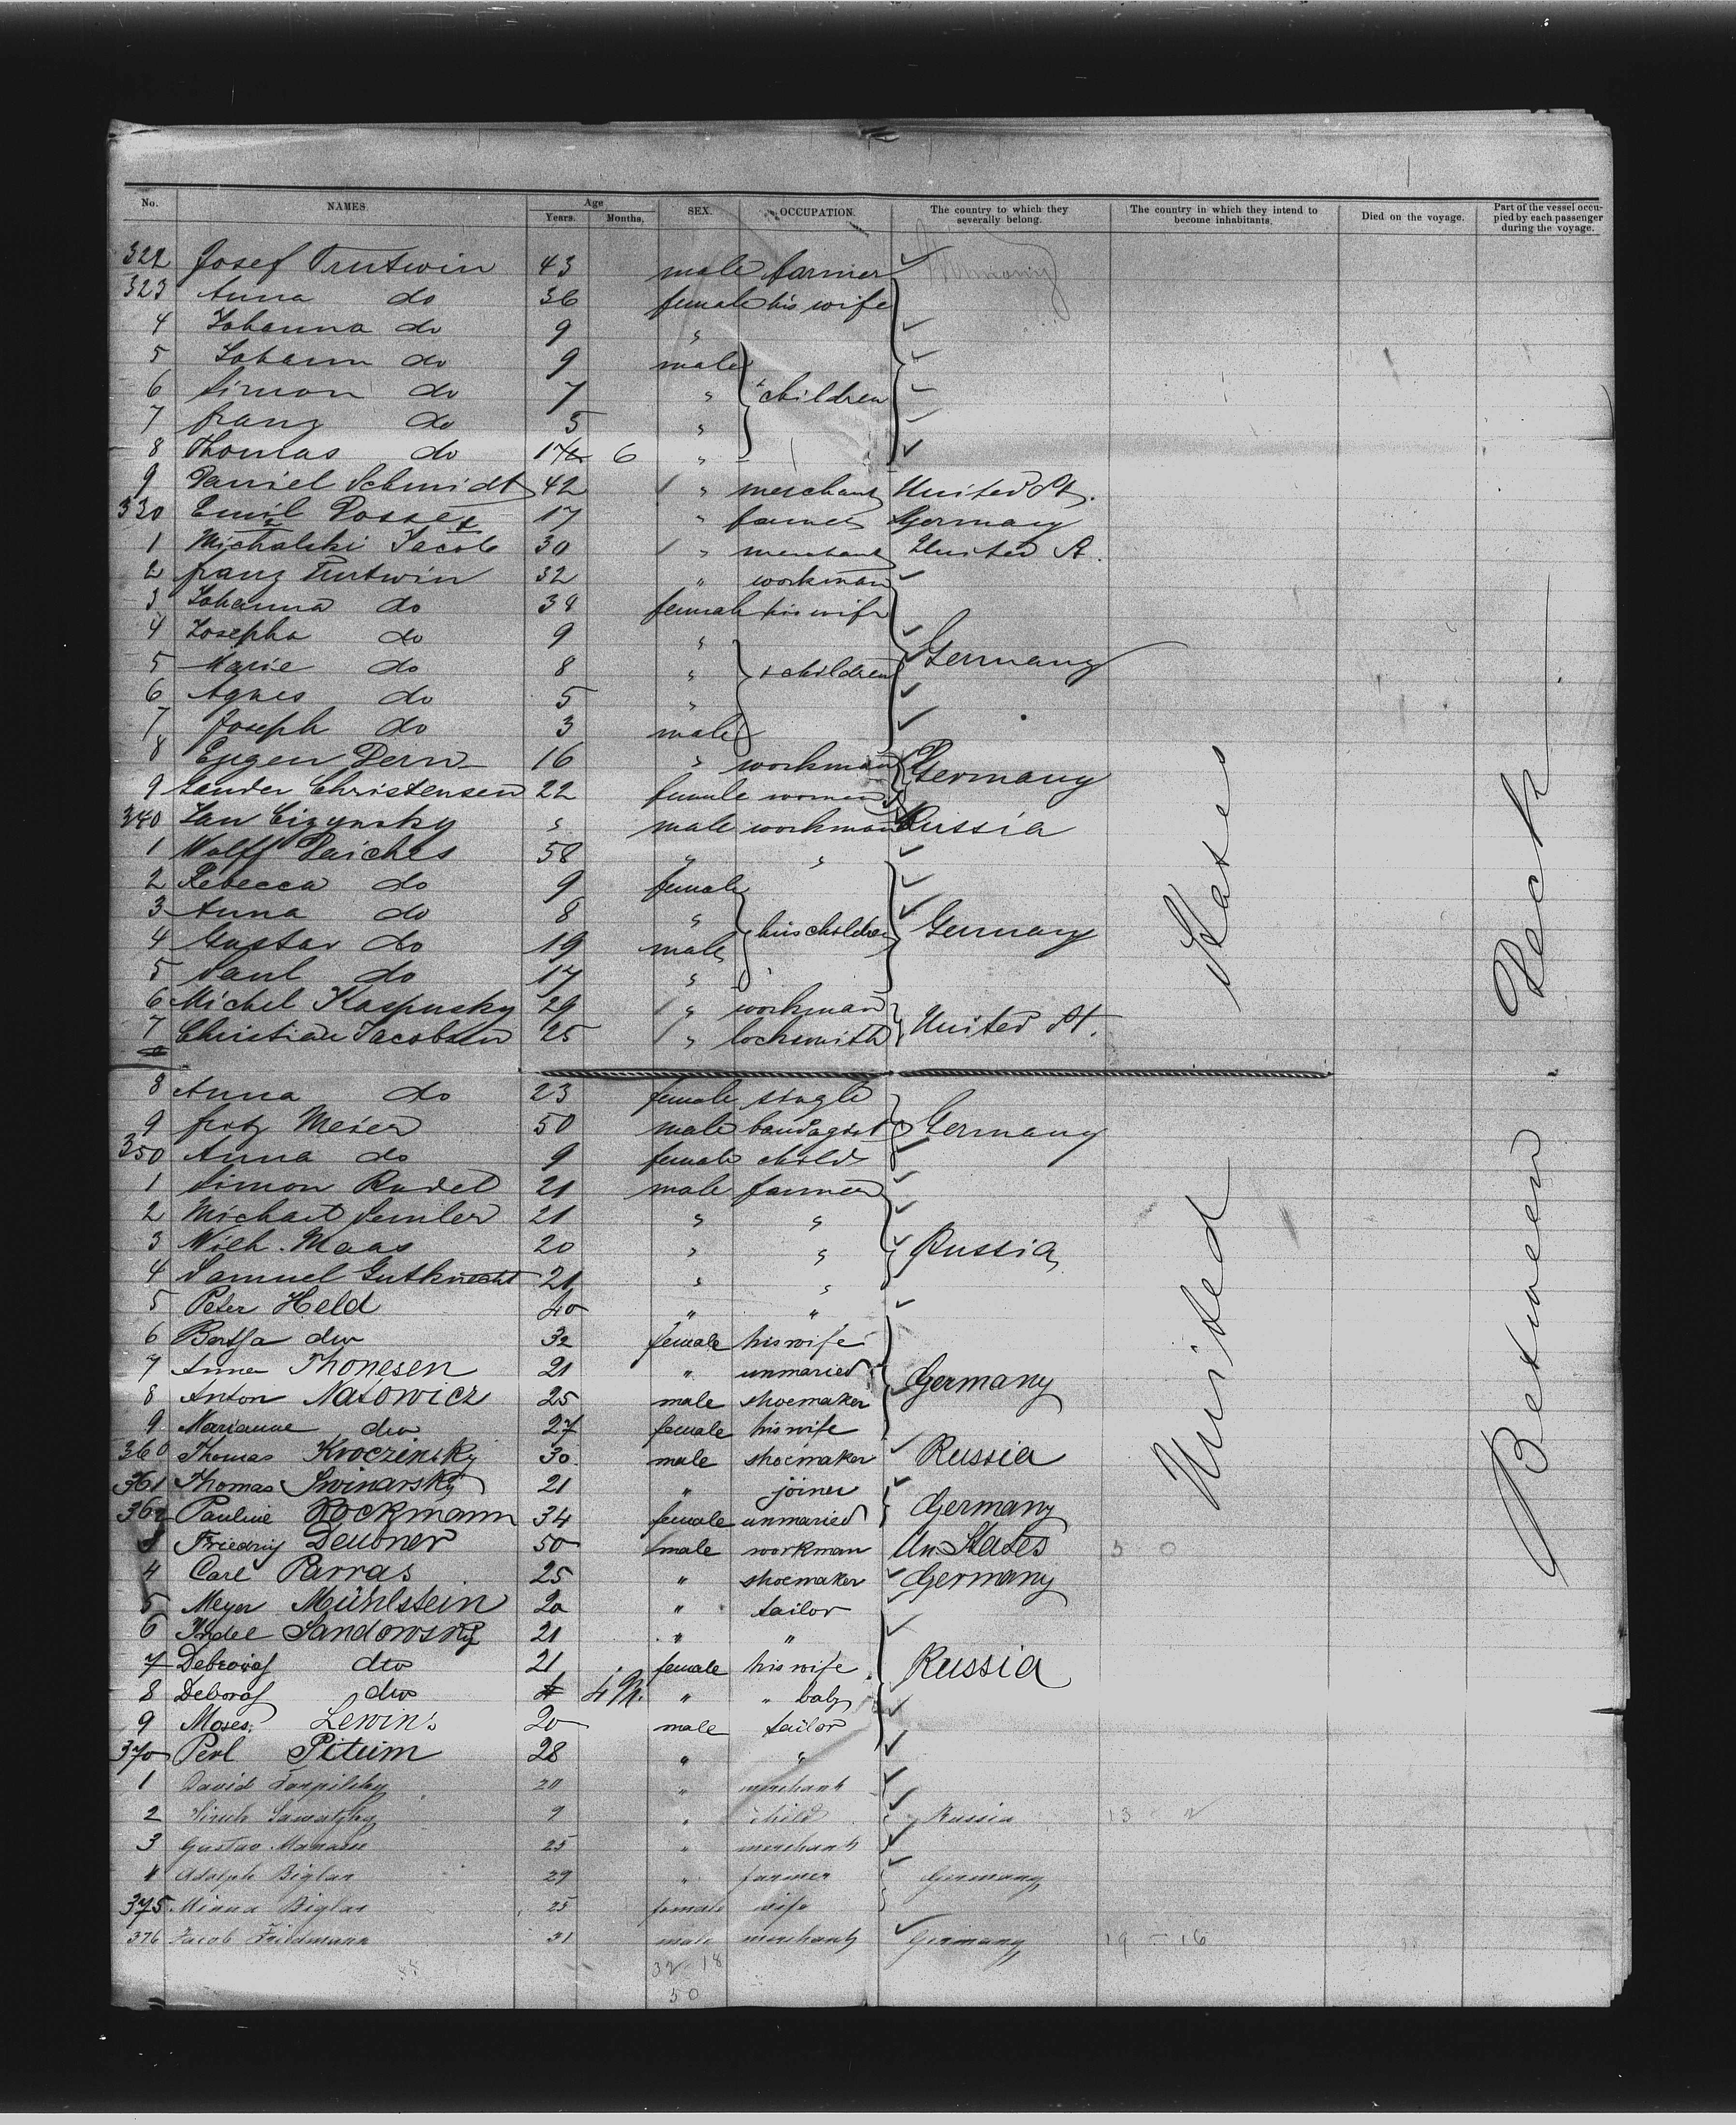 No. NAMES. Age Years. Months. SEX. OCCUPATION. The country to which they severally belong. The country in which they intend to become inhabitants. Died on the voyage. Part of the vessel occupied by each passenger during the voyage.
322 Josef Trutwin 43 male farmer
323 Anna do 36 female his wife
4 Johanna do 9 "
5 Johann do 9 male
6 Simon do 7 " children
7 franz do 5 "
8 Thomas do 6 "
9 Daniel Schmidt 42 " merchant United St.
330 Emil Posser 17 " farmer Germany
1 Michalski Jacob 30 " merchant United St.
2 franz Trutwin 32 " workman
3 Johanna do 38 female his wife
4 Josepha do 9 "
5 Marie do 8 " children Germany
6 Agnes do 5 "
7 Joseph do 3 male
8 Eugen Dern 16 " workman Germany
9 Sander Christensen 22 female women
340 Jan Cizynsky " male workman Russia
1 Wolff Paiches 58 " "
2 Rebecca do 9 female
3 Anna do 8 " his children Germany
4 Gustav do 19 male
5 Paul do 17 "
6 Michel Kaspusky 29 " workman
7 Christian Jacobsen 25 " locksmith United St.
8 Anna do 23 female single
9 fritz Meier 50 male bandagist Germany
350 Anna do 9 female child
1 Simon Rudel 21 male farmer
2 Michael Semler 21 " "
3 Wilh. Maas 20 " " Russia
4 Samuel Gutknecht 21 " "
5 Peter Held 40 " "
6 Bertha dto 32 female his wife
7 Anna Thonesen 21 " unmaried Germany
8 Anton Natowicz 25 male shoemaker
9 Marianne dto 27 female his wife
360 Thomas Kroczinsky 30 male shoemaker Russia
361 Thomas Swinarsky 21 " joiner
362 Pauline Rockmann 34 female unmaried Germany
3 Friedrich Deubner 50 male workman Un. States 5 0
4 Carl Parras 25 " shoemaker Germany
5 Meyer Mühlstein 20 " tailor
6 Judel Sandowsky 21 " "
7 Deborah dto 21 female his wife Russia
8 Deborah dto 4 M. " " baby
9 Moses Lewin 20 male tailor
370 Perl Piteim 28 " "
1 David 20 " merchant
2 Hirsch Sawatzky 9 " child Russia 13
3 Gustav Manasse 25 " merchant
4 Adolph Biglar 29 " farmer Germany
375 Minna Biglar 25 female wife
376 Jacob Friedmann 31 male merchant Germany 19 - 16
32 18
50
United States
Between Deck